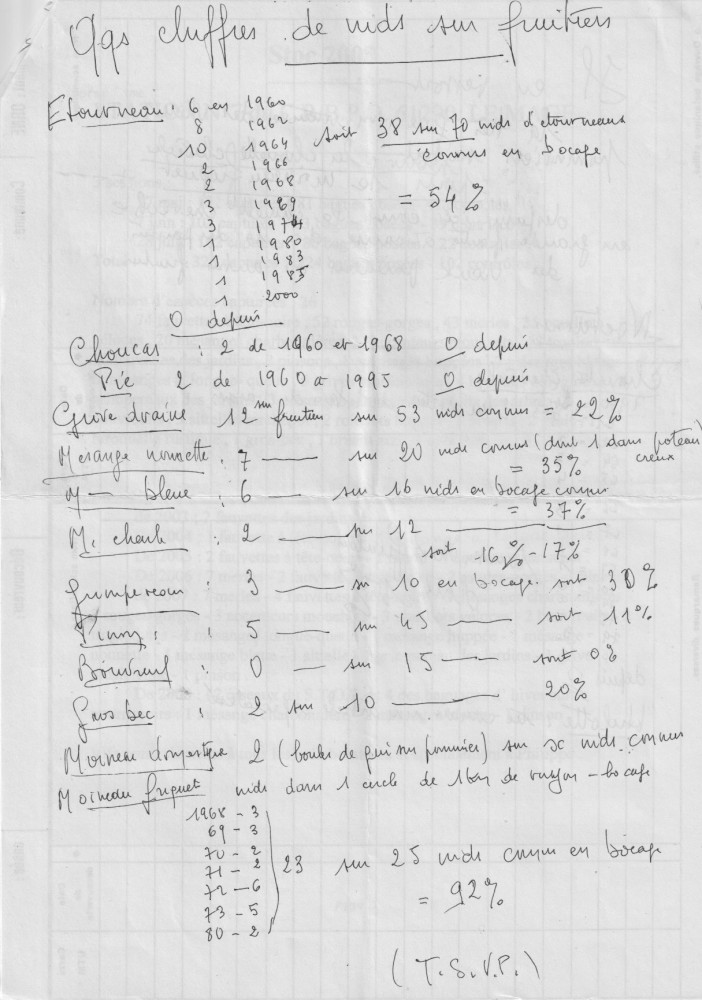 Qqs chiffres de nids sur fruitiers
Etourneau : 6 en 1960
8 1962
10 1964 soit 38 sur 70 nids d'étourneaux
connus en bocage
2 1966
2 1968 = 54%
3 1969
3 1974
1 1980
1 1983
1 1985
1 2000
0 depuis
Choucas : 2 de 1960 et 1968 0 depuis
Pie 2 de 1960 à 1995 0 depuis
Grive draine 12 sur fruitiers sur 53 nids connus = 22%
Mésange nonnette : 7 — sur 20 nids connus (dont 1 dans poteau creux
= 35%
M — bleue : 6 — sur 16 nids en bocage connus
= 37%
M. charb : 2 — sur 12 —
soit 16,% - 17%
Grimpereau : 3 — sur 10 en bocage. soit 30%
Pinson : 5 — sur 45 — soit 11%
Bouvreuil : 0 — sur 15 — soit 0%
Gros bec : 2 sur 10 — 20%
Moineau domestique 2 (boules de gui sur pommier) sur x nids connus
Moineau friquet nids dans 1 cercle de 1km de rayon - bocage
1968 - 3
69 - 3
70 - 2
71 - 2 23 sur 25 nids connus en bocage
72 - 6 = 92%
73 - 5
80 - 2
(T.S.V.P.)